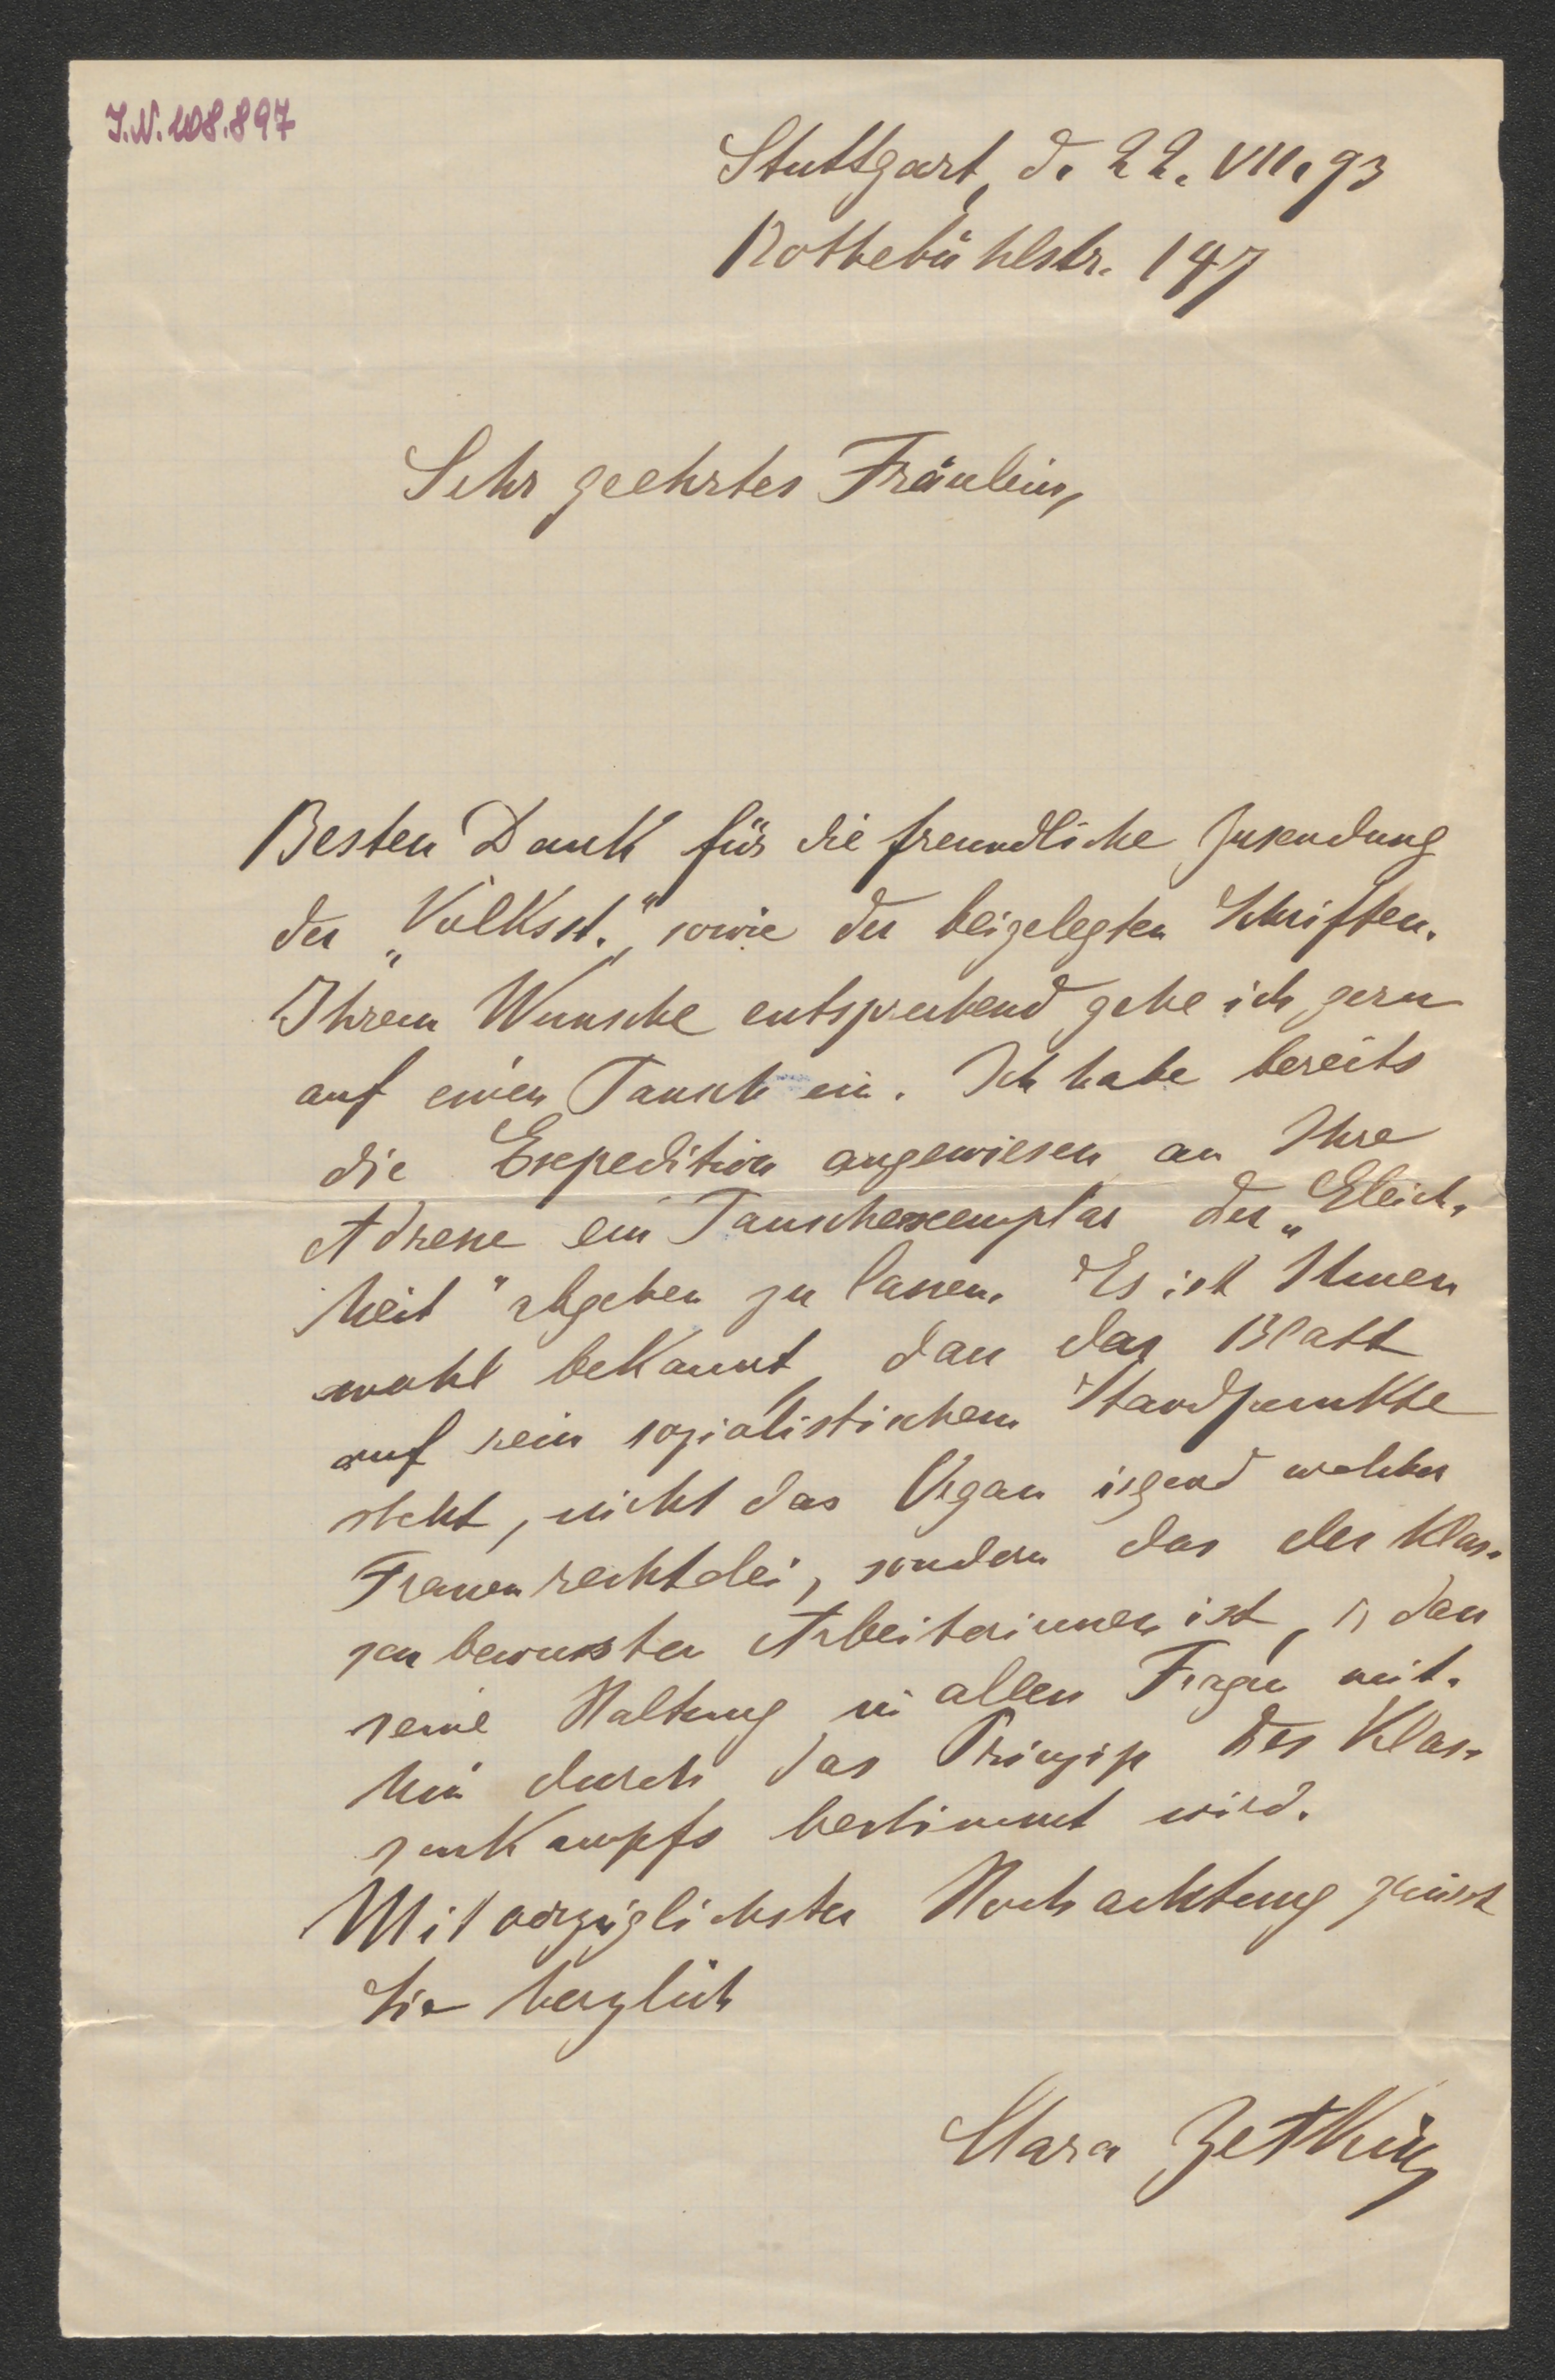 J.N. 108.897
Stuttgart, d. 22. VII. 93
Rothebühlstr. 147
Sehr geehrtes Fräulein,
Besten Dank für die freundliche Zusendung
der „Volksst.", sowie der beigelegten Schriften.
Ihrem Wunsche entsprechend gehe ich gern
auf einen Tausch ein. Ich habe bereits
die Expedition angewiesen an Ihre
Adresse ein Tauschexemplar der „Gleich-
heit" abgehen zu lassen. Es ist Ihnen
wohl bekannt, dass das Blatt
auf rein sozialistischem Standpunkte
steht, nicht das Organ irgend welcher
Frauenrechtelei, sondern das der klas-
senbewussten Arbeiterinnen ist, dass
seine Haltung in allen Fragen mit-
hin durch das Prinzip des Klas-
senkampfs bestimmt wird.
Mit vorzüglichster Hochachtung grüsst
Sie herzlich
Clara Zetkin